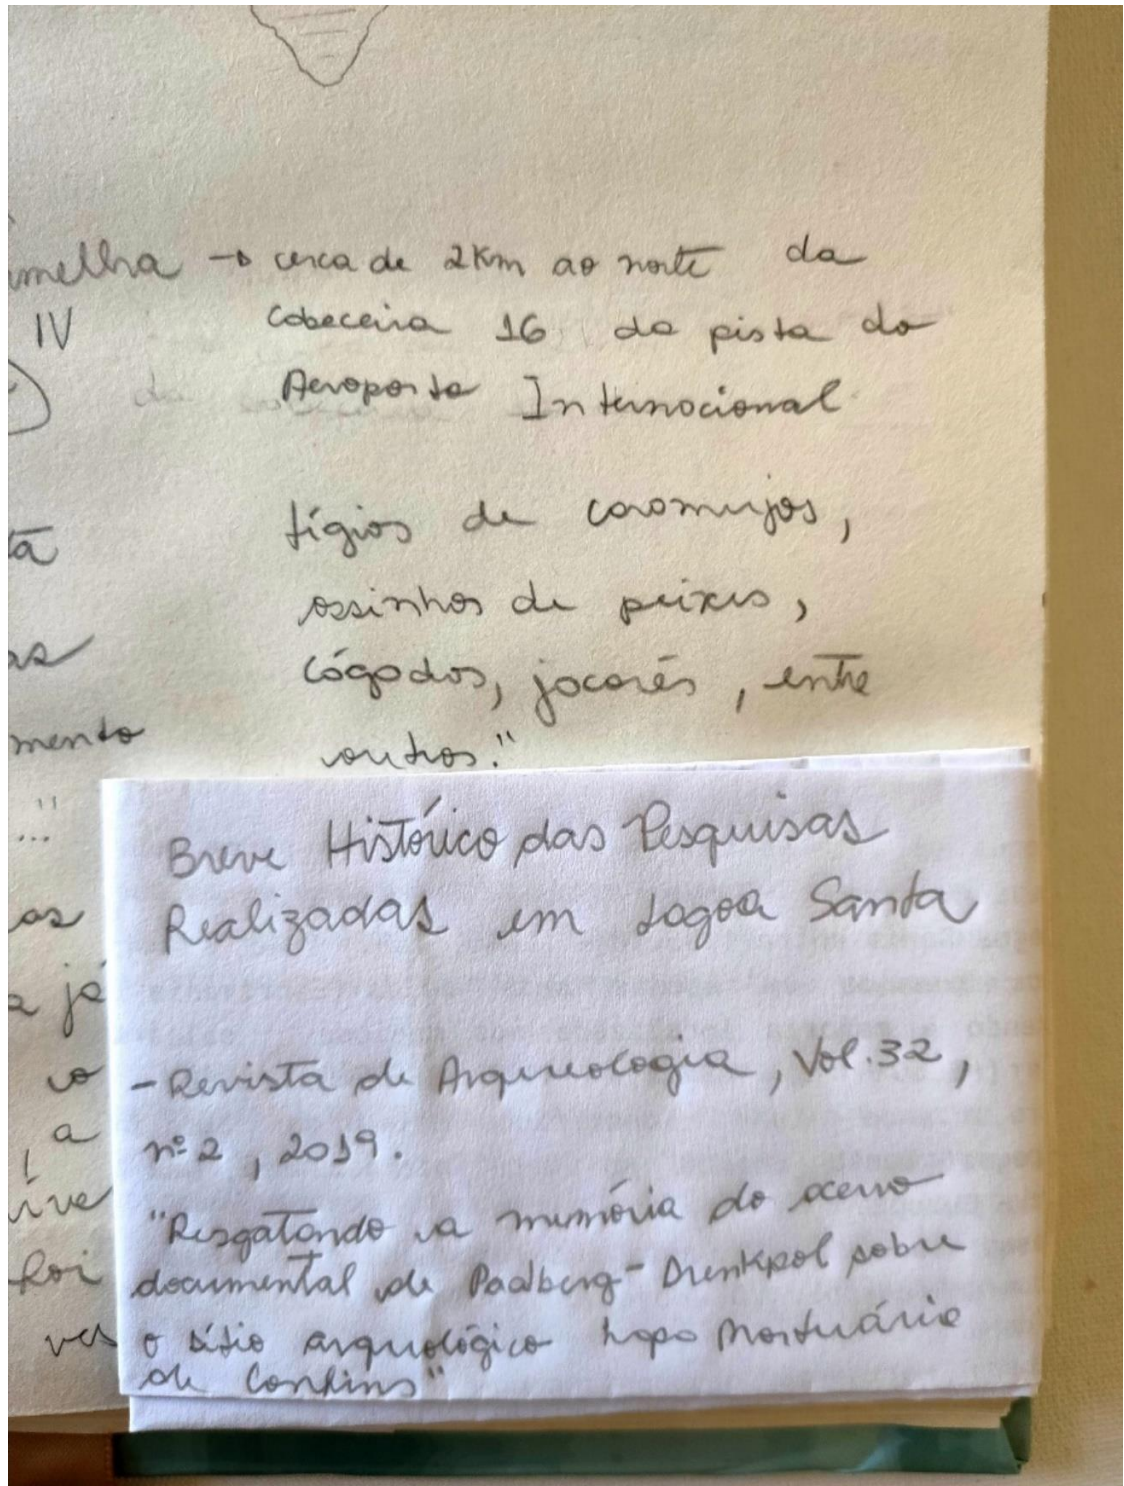 melha → cerca de 2Km ao norte da
IV cabeceira 16 da pista do
Aeroporto Internacional
tígios de caramujos,
tã
ossinhos de peixes,
as
cágados, jacarés, entre
mento
outros."
..."
Breve Histórico das Pesquisas
as
Realizadas em Lagoa Santa
a já
co
- Revista de Arqueologia, Vol. 32,
, a
nº 2, 2019.
íve
"Resgatando a memória do acervo
documental de Padberg-Drenkpol sobre
o sítio arqueológico Lapa Mortuária
de Confins"